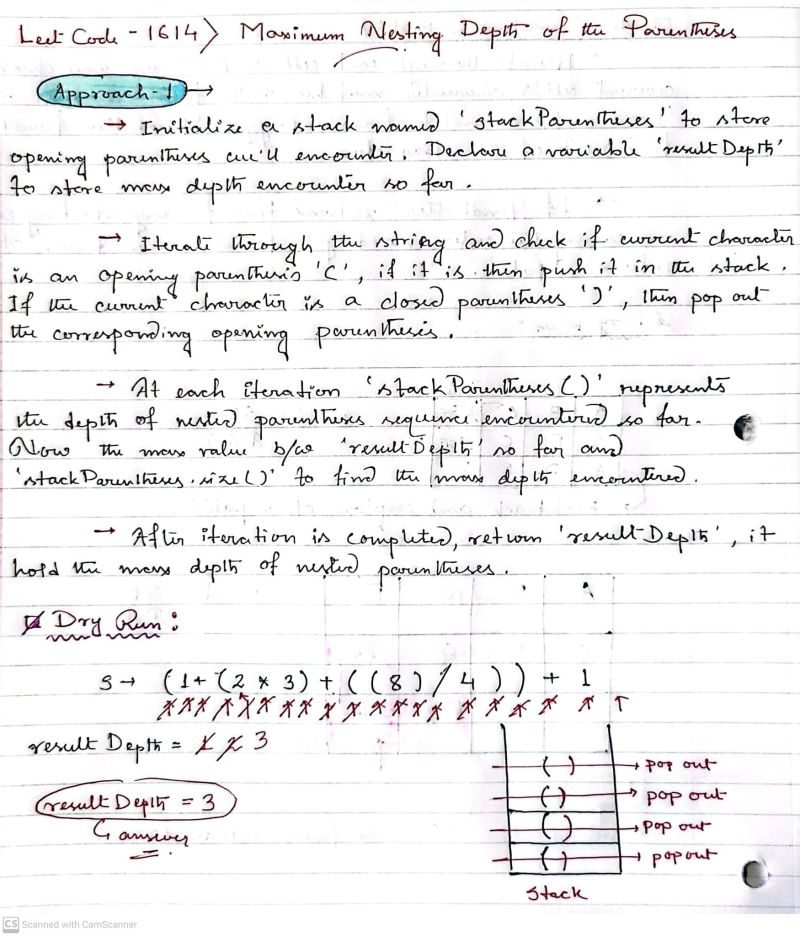 Leet Code - 1614) Maximum Nesting Depth of the Parentheses
Approach-1 →
→ Initialize a stack named 'stackParentheses' to store
opening parentheses we'll encounter. Declare a variable 'resultDepth'
to store max depth encounter so far.
→ Iterate through the string and check if current character
is an opening parenthesis '(', if it is then push it in the stack.
If the current character is a closed parentheses ')', then pop out
the corresponding opening parenthesis.
→ At each iteration 'stackParentheses()' represents
the depth of nested parentheses sequence encountered so far.
Now the max value b/w 'resultDepth' so far and
'stackParentheses.size()' to find the max depth encountered.
→ After iteration is completed, return 'resultDepth', it
hold the max depth of nested parentheses.
Dry Run:
s → (1+(2*3)+((8)/4))+1
resultDepth = 1 2 3
( ) → pop out
resultDepth = 3
( ) → pop out
answer
( ) → pop out
( ) → pop out
Stack
CS Scanned with CamScanner